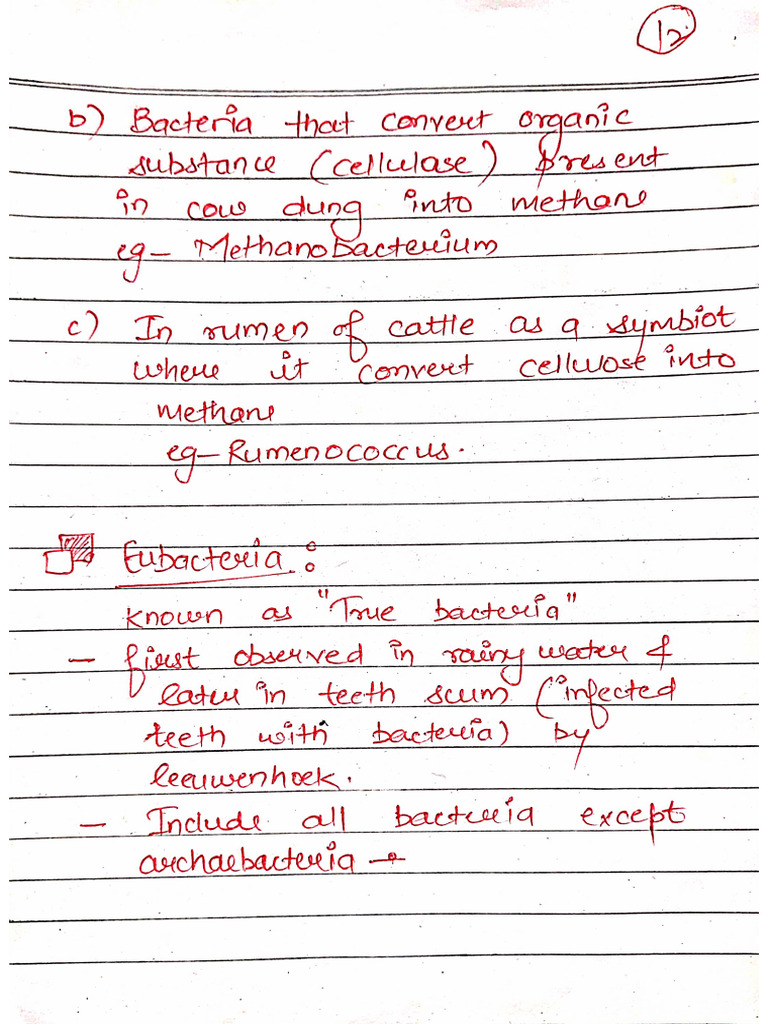 12.
b) Bacteria that convert organic
substance (cellulase) present
in cow dung into methane
eg- Methanobacterium
c) In rumen of cattle as a symbiot
where it convert cellulose into
methane
eg- Rumenococcus.
Eubacteria :
known as "True bacteria"
- first observed in rainy water &
later in teeth scum (infected
teeth with bacteria) by
leeuwenhoek.
- Include all bacteria except
archaebacteria →